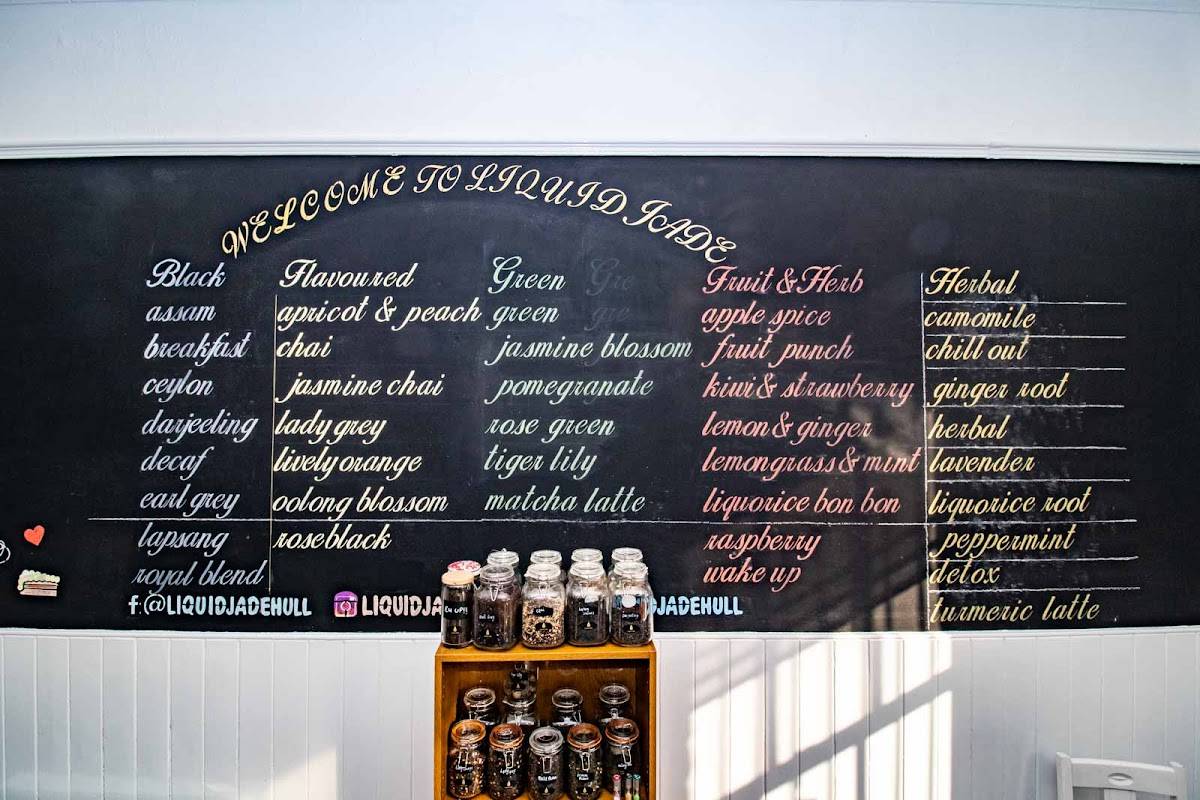 WELCOME TO LIQUID JADE
Black
assam
breakfast
ceylon
darjeeling
decaf
earl grey
lapsang
royal blend
Flavoured
apricot & peach
chai
jasmine chai
lady grey
lively orange
oolong blossom
rose black
Green
green
jasmine blossom
pomegranate
rose green
tiger lily
matcha latte
Fruit & Herb
apple spice
fruit punch
kiwi & strawberry
lemon & ginger
lemongrass & mint
liquorice bon bon
raspberry
wake up
Herbal
camomile
chill out
ginger root
herbal
lavender
liquorice root
peppermint
detox
turmeric latte
f:@LIQUIDJADEHULL
LIQUIDJA
DJADEHULL